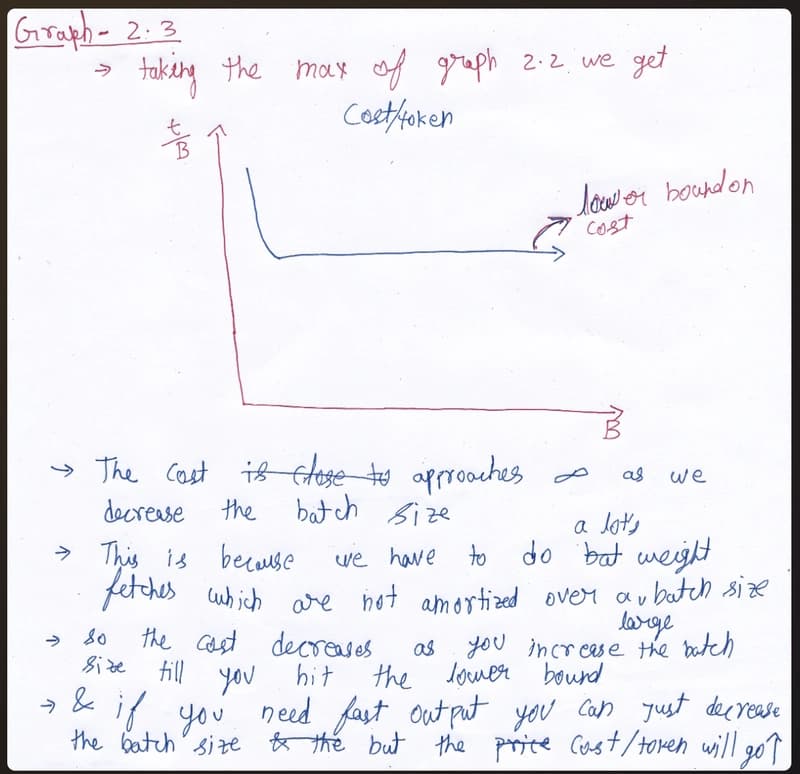 Graph - 2.3
→ taking the max of graph 2.2 we get
Cost/token
t/B
lower bound on
cost
B
→ The cost is close to approaches ∞ as we
decrease the batch size
a lots
→ This is because we have to do bat weight
fetches which are not amortized over a batch size
large
→ so the cost decreases as you increase the batch
size till you hit the lower bound
→ & if you need fast output you can just decrease
the batch size & the but the price cost/token will go↑